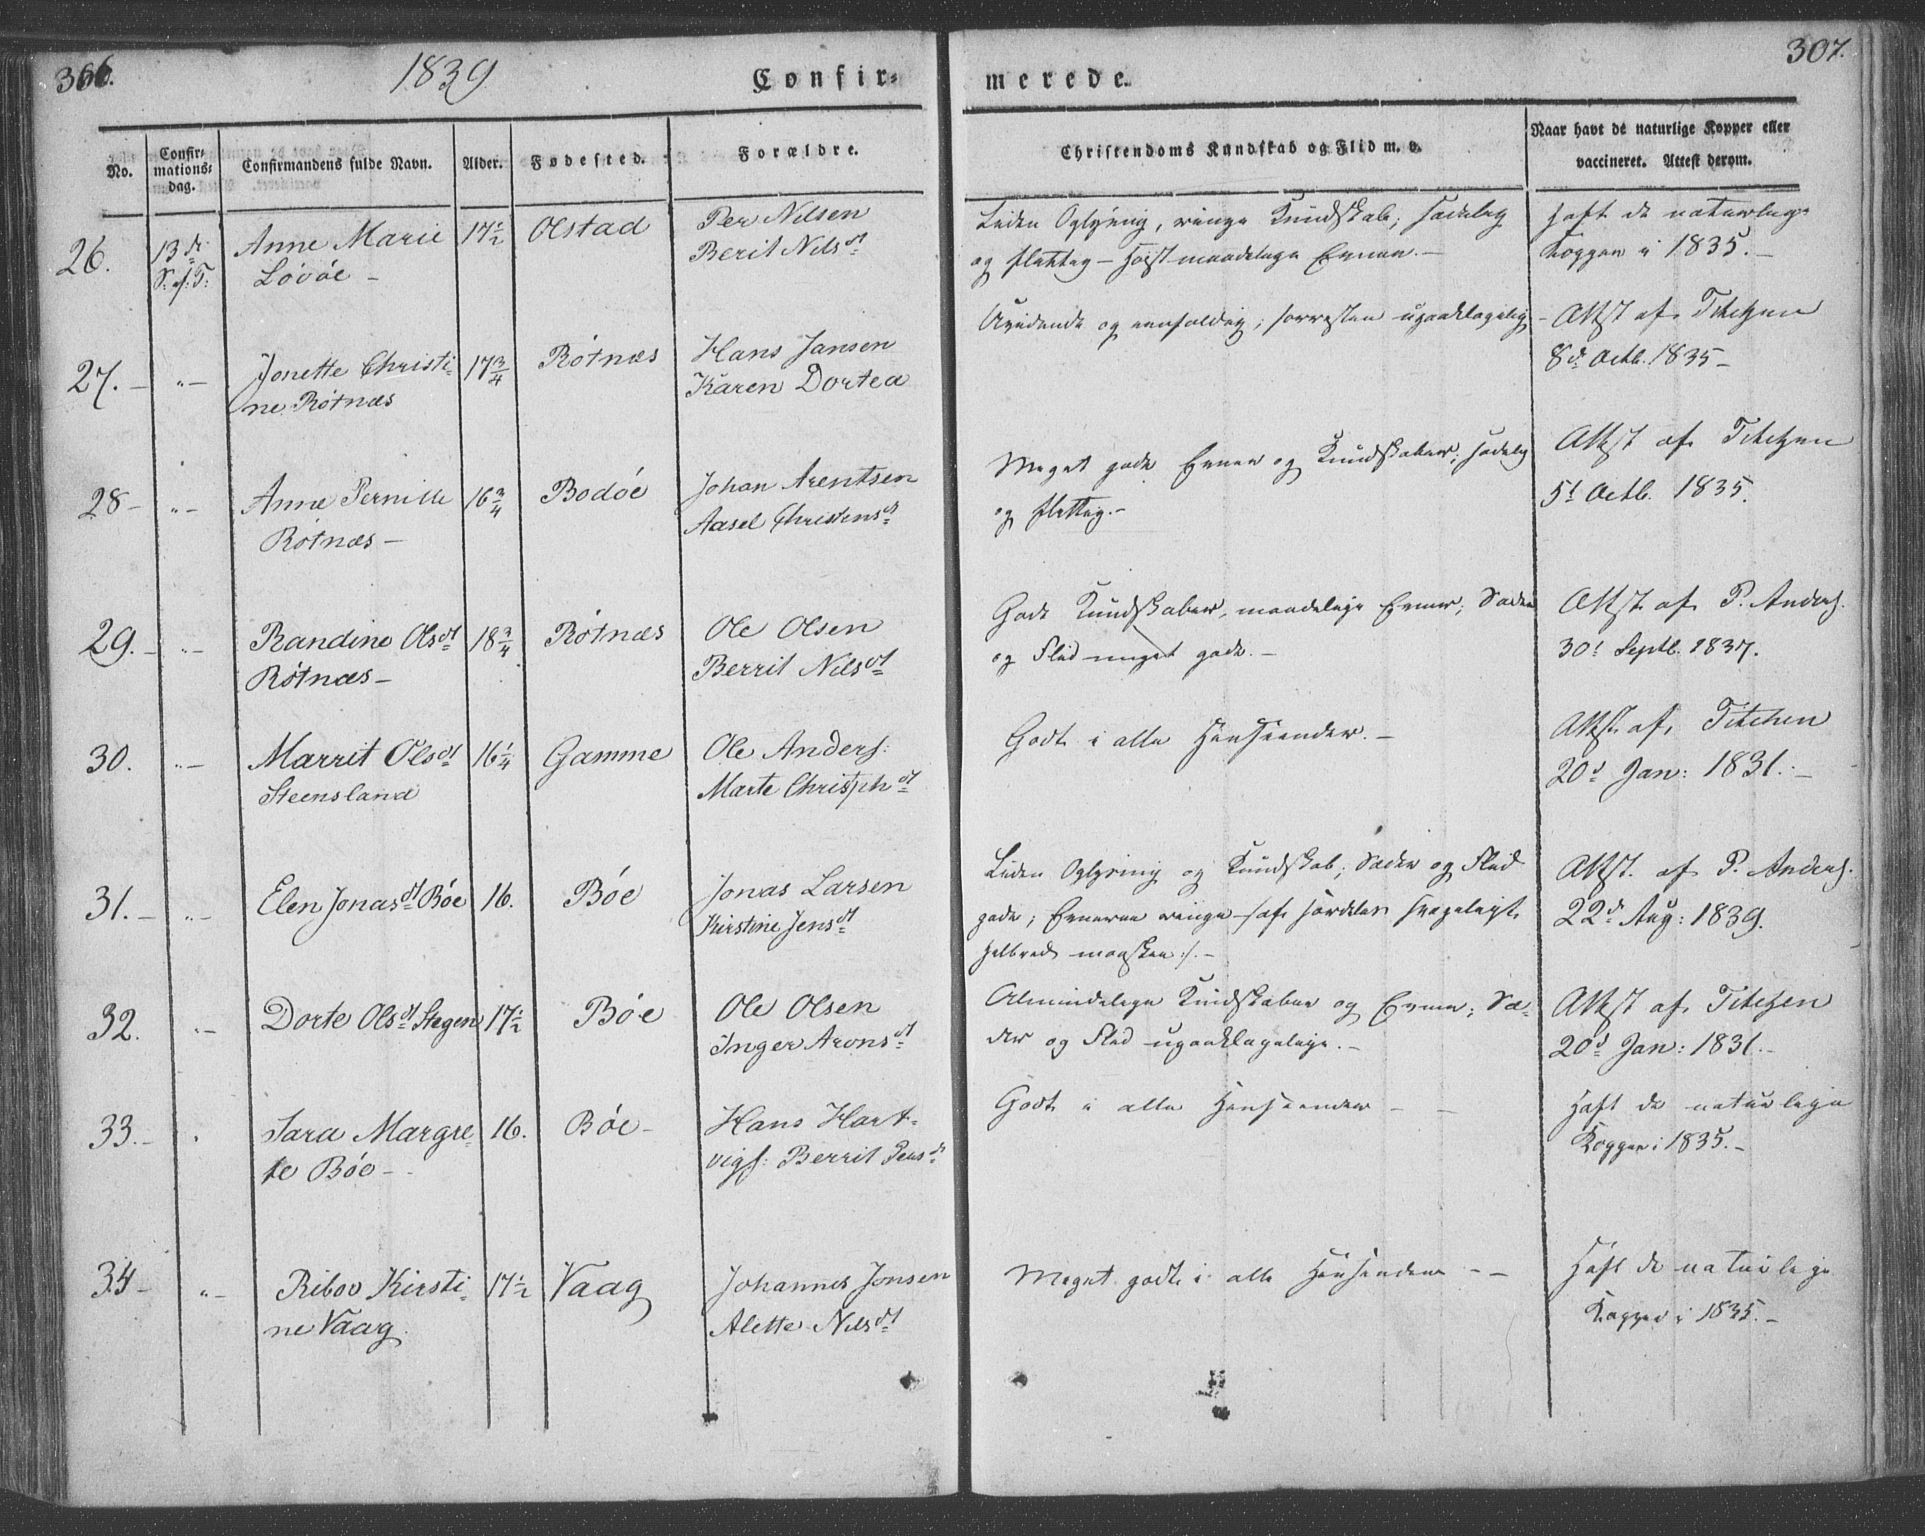 306.
1839
Confir-
merede.
307.
No.
Confir-
mations-
dag.
Confirmandens fulde Navn.
Alder.
Fødested.
Forældre.
Christendoms Kundskab og Flid m. v.
Naar havt de naturlige Kopper eller
vaccineret. Attest derom.
26.
13de
S. ef. T:
Anne Marie
Lövöe -
17 1/2
Olstad
Per Nilsen
Berit Nilsdt
Liden Oplysning, ringe Kundskab; sædelig
og flittig - Høist maadelige Evner. -
Haft de naturlige
Kopper i 1835. -
27. -
" -
Jonette Christi-
ne Rötnæs
17 3/4
Rötnæs
Hans Jansen
Karen Dortea
og eenfoldig; forresten upaaklagelig -
Attst af Titchen
8d Octb. 1835 -
28 -
" -
Anne Pernille
Rötnæs -
16 3/4
Bodöe
Johan Arentsen
Aasel Christensdt
Meget gode Evner og Kundskaber; sædelig
og flittig. -
Attst af Titchen
5t Octb. 1835.
29. -
" -
Randine Olsdt
Rötnæs -
18 3/4
Rötnæs
Ole Olsen
Berrit Nilsdt
Gode Kundskaber, maadelige Evner; Sæder
og Flid meget gode. -
Attst af P. Anders.
30t Septb. 1837.
30.
" -
Marrit Olsdt
Steensland
16 1/4
Gamme
Ole Anders:
Marte Christphdt
Godt i alle Henseender. -
Attst af Titchen
20d Jan: 1831. -
31. -
" -
Elen Jonasdt Böe
16.
Böe
Jonas Larsen
Kirstine Jensdt
Liden Oplysning og Kundskab; Sæder og Flid
gode; Evnerne ringe - af særdeles svageligt
Helbred maaskee :/. -
Attst. af P. Anders.
22d Aug: 1839.
32.
" -
Dorte Olsdt Stegen
17 1/2
Böe
Ole Olsen
Inger Aronsdt
Almindelige Kundskaber og Evner; Sæ-
der og Flid upaaklagelige. -
Attst af Titchen
20d Jan: 1831. -
33. -
"
Sara Margre-
te Böe - -
16.
Böe -
Hans Hart-
vigs: Berrit Pedsdt
Godt i alle Henseender - -
Haft de naturlige
Kopper i 1835. -
34 -
" -
Ribor Kirsti-
ne Vaag.
17 1/2
Vaag
Johannes Jonsen
Alette Nilsdt
Meget godt i alle Henseender - -
Haft de naturlige
Kopper i 1835. -